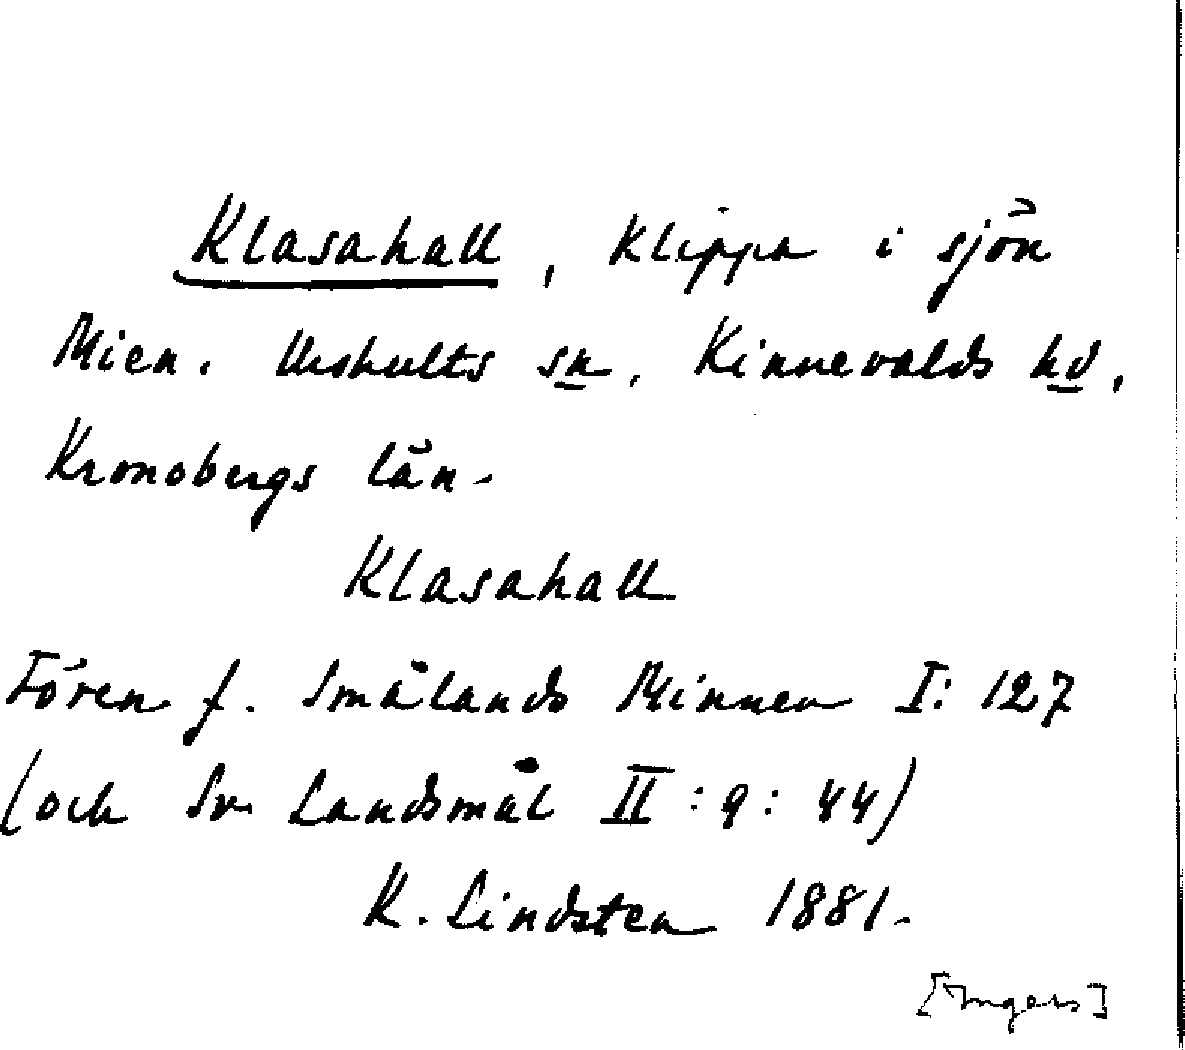 Klasahall, klippa i sjön
Mien. Urshults sn. Kinnevalds hd,
Kronobergs län.
Klasahall
Fören f. Smålands Minnen I: 127
(och Sv. Landsmål II: 9: 44)
K. Lindsten 1881.